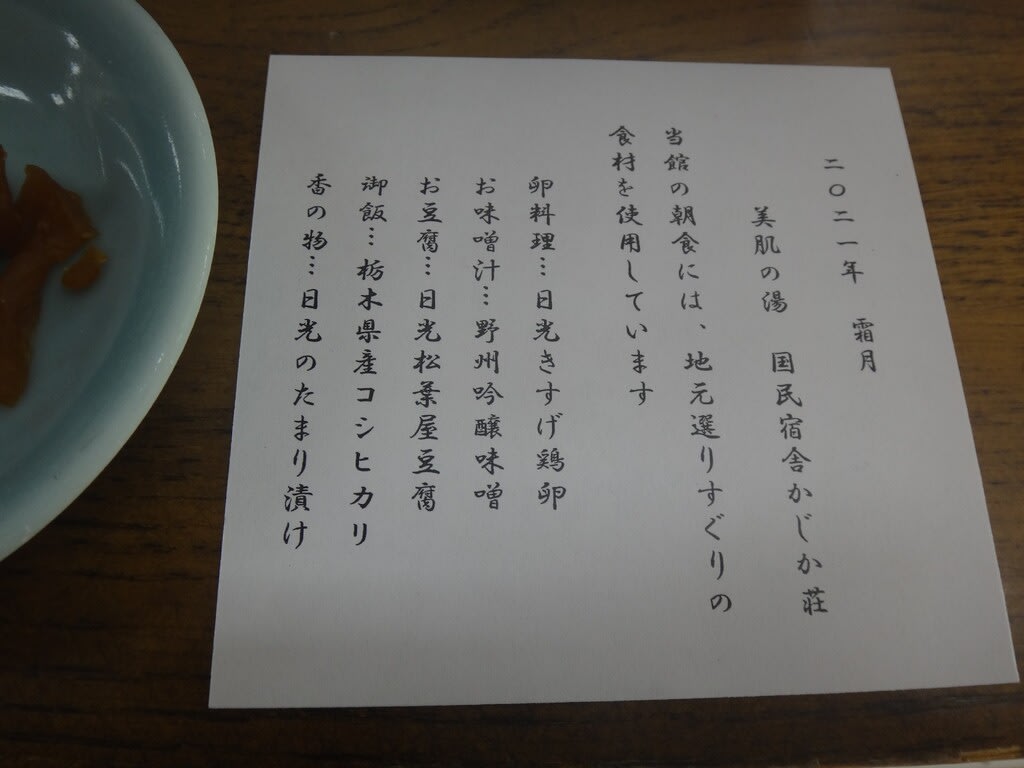 二〇二一年　霜月
美肌の湯　国民宿舎かじか荘
当館の朝食には、地元選りすぐりの
食材を使用しています
卵料理…日光きすげ鶏卵
お味噌汁…野州吟醸味噌
お豆腐…日光松葉屋豆腐
御飯…栃木県産コシヒカリ
香の物…日光のたまり漬け